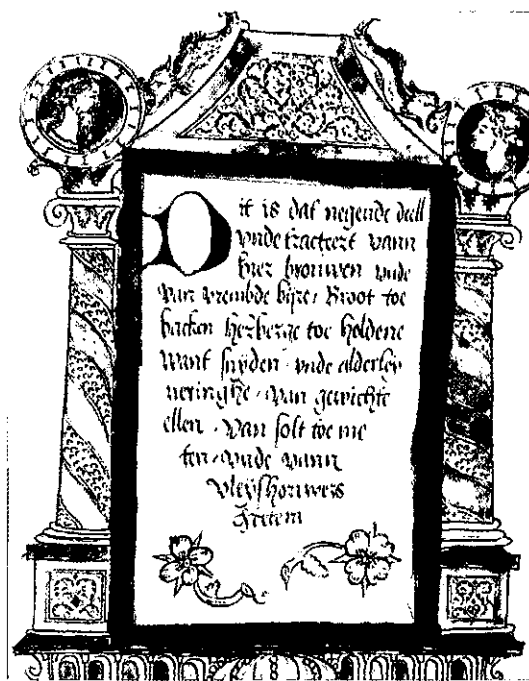 Dit is dat negende deell
vnde tracteert vann
bier brouwen vnde
van vrembde bijre. Broot toe
backen herberge toe holdene
want snyden. vnde alderley
neringhe. van gewichte
ellen. van solt toe me
ten. vnde vann
vleyshouwers